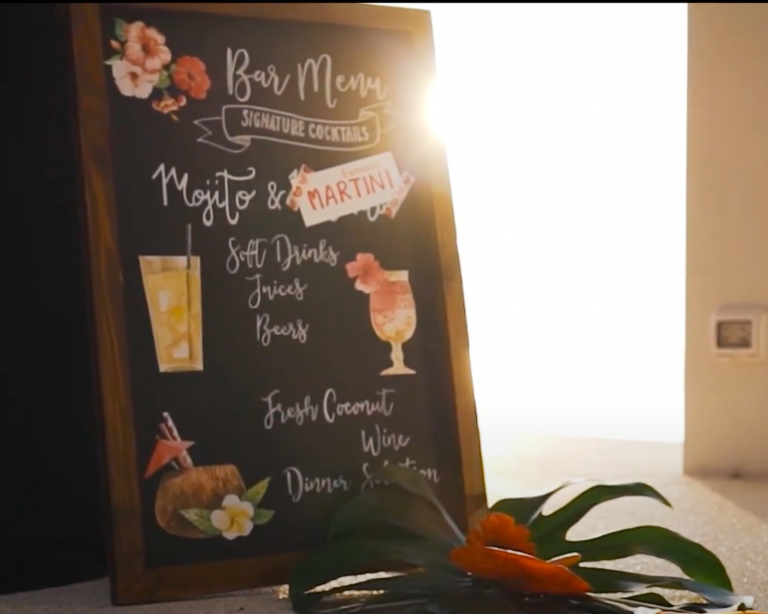 Bar Menu
SIGNATURE COCKTAILS
Mojito &
MARTINI
Soft Drinks
Juices
Beers
Fresh Coconut
Wine
Dinner Selection